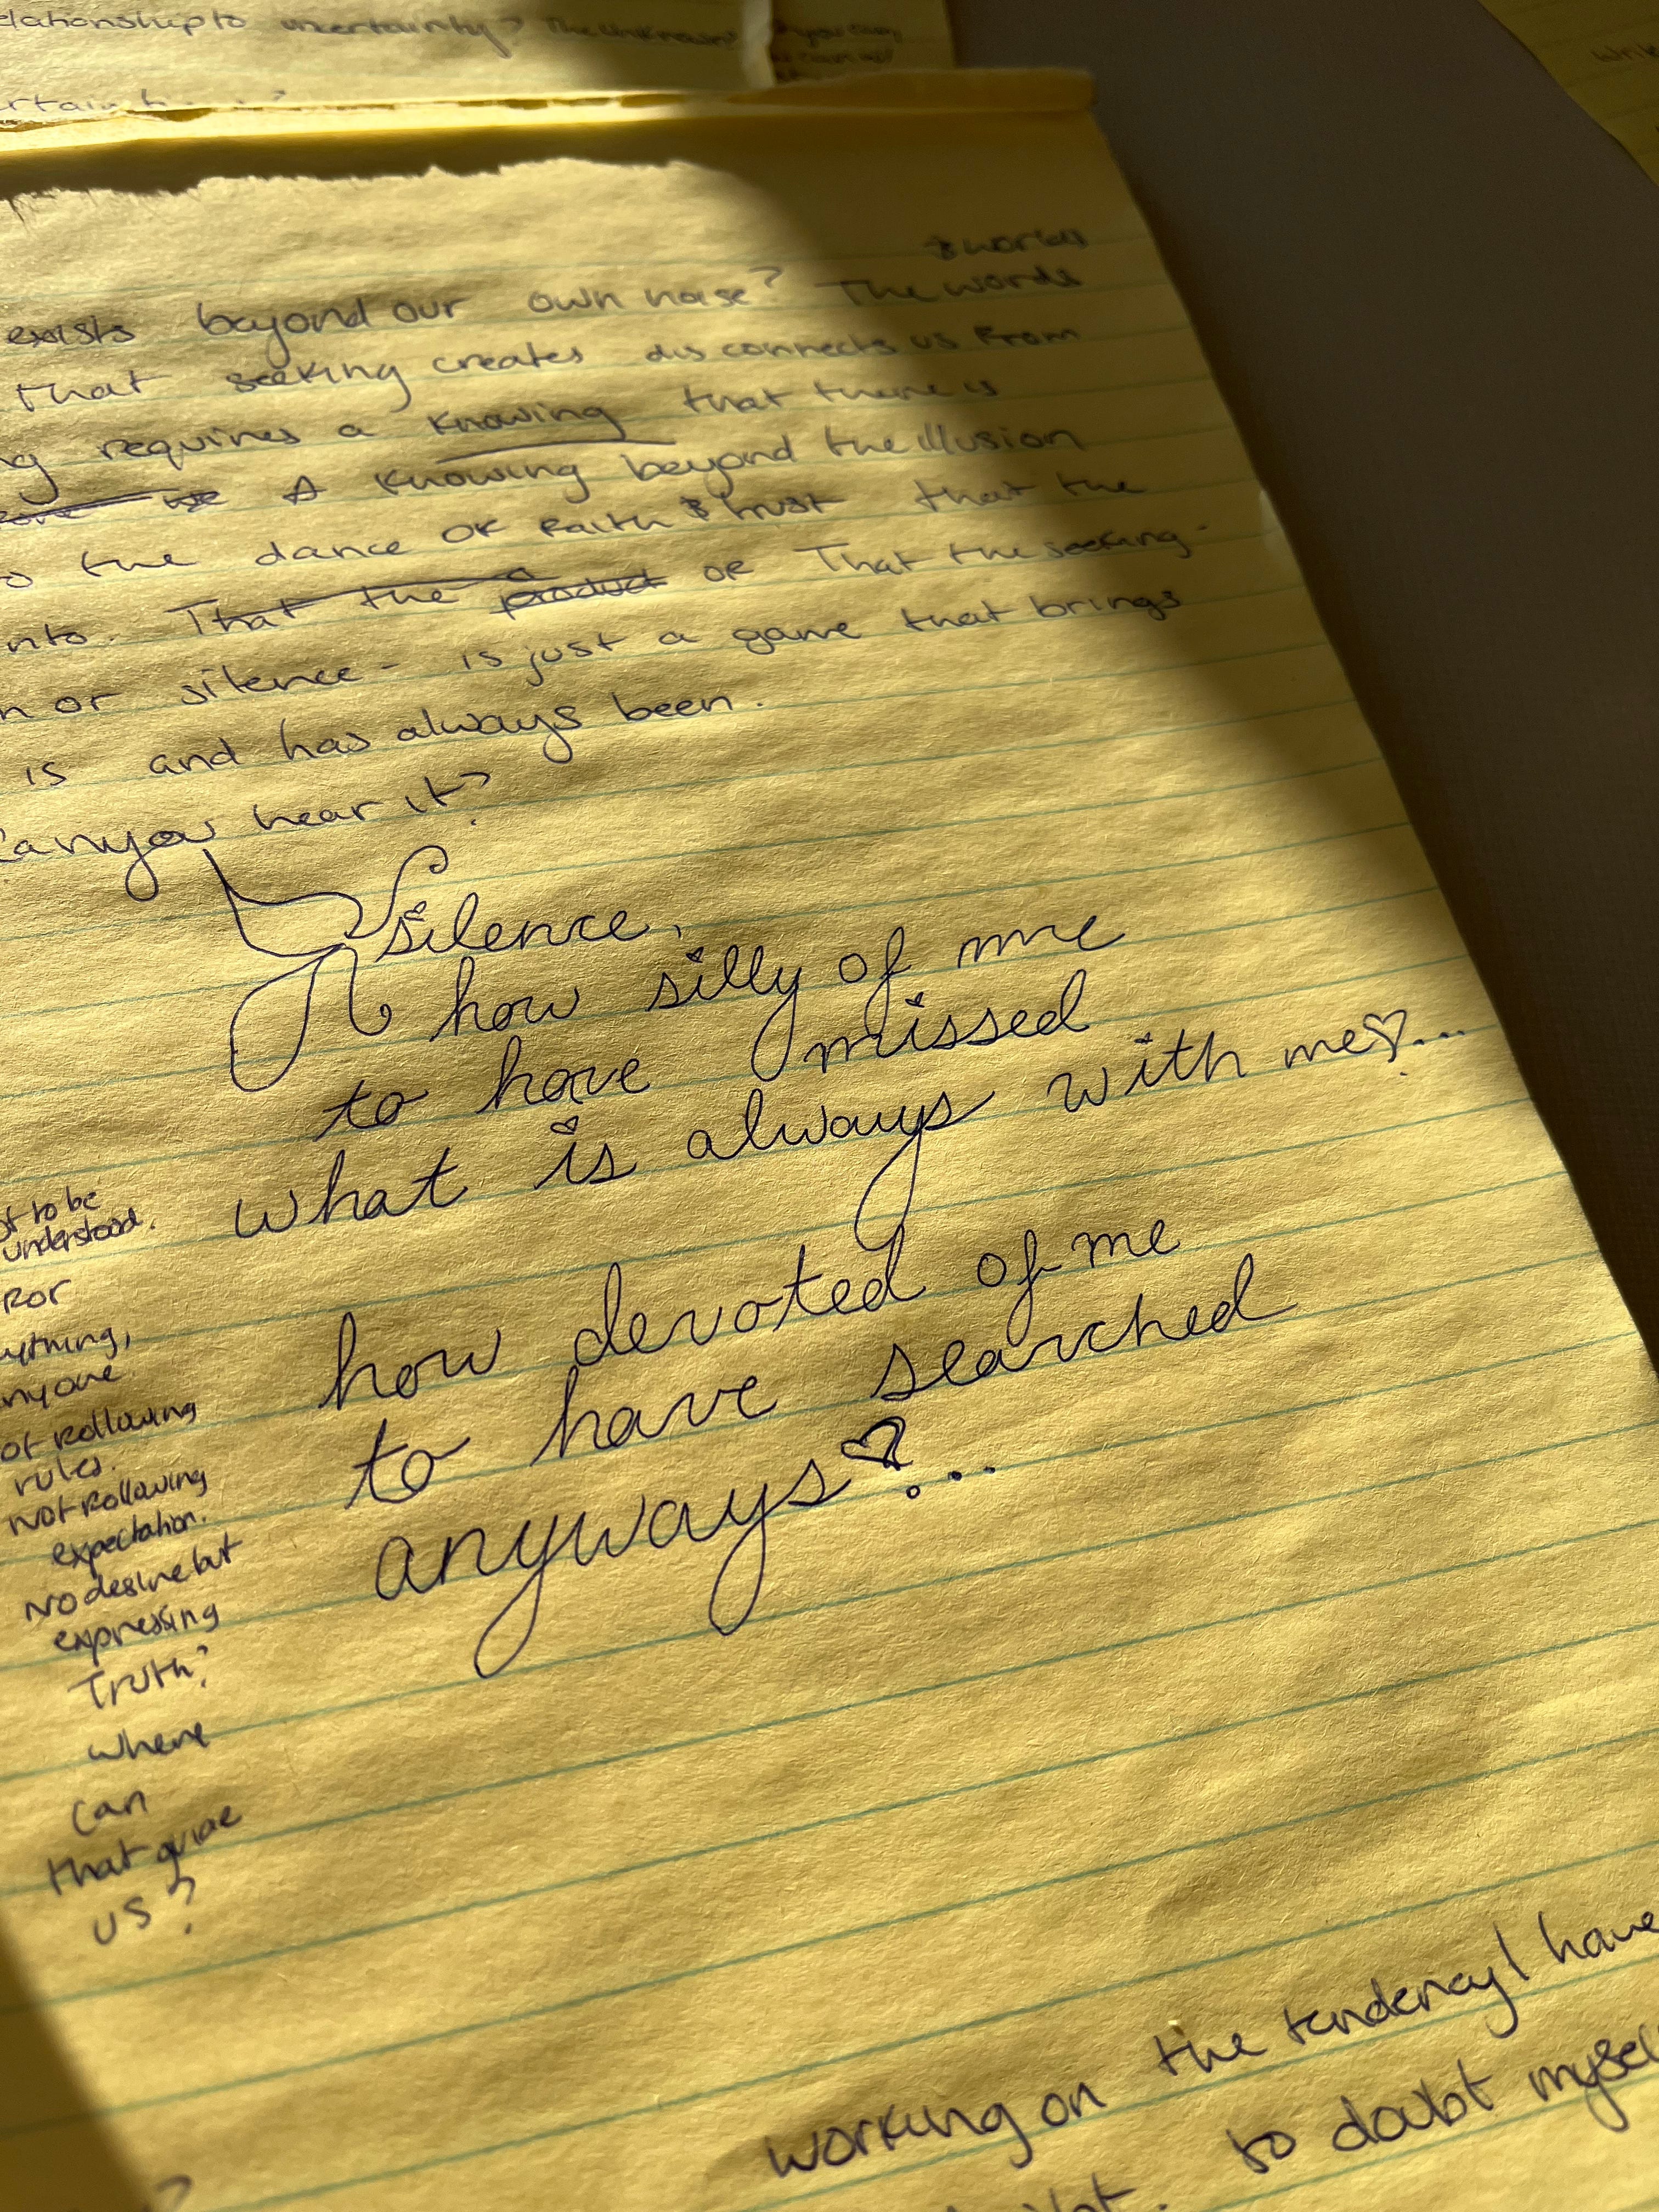 relationship to uncertainty? The unknown
& worlds
exists beyond our own noise? The words
that seeking creates disconnects us from
requires a knowing that there is
A knowing beyond the illusion
the dance of faith & trust that the
That the product of That the seeking -
or silence - is just a game that brings
is and has always been.
Can you hear it?
silence,
how silly of me
to have missed
what is always with me♡...
how devoted of me
to have searched
anyways♡...
to be
understood.
For
anyone
following
rules.
Not following
expectation.
No desire but
expressing
Truth?
where
can
that guide
us?
working on the tendency I have
to doubt myself